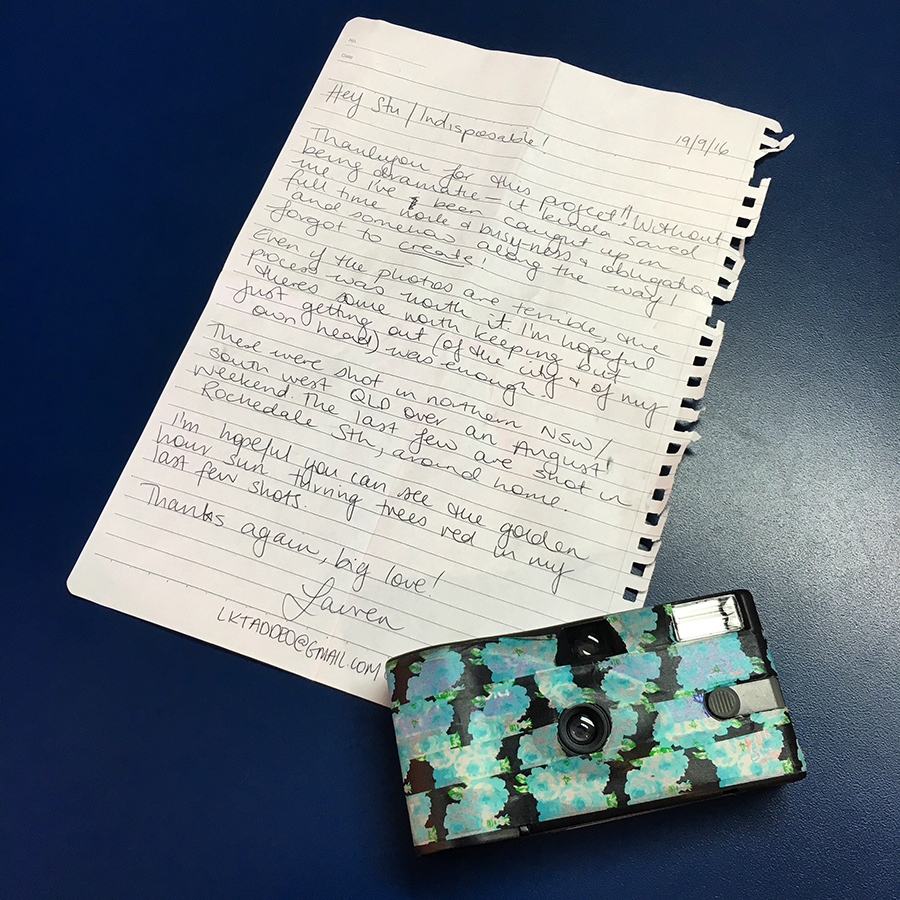 No.
Date
19/9/16
Hey Stu/Indisposable!
Thankyou for this project!! Without
being dramatic – it kinda saved
me! I've been caught up in
full time work & busy-ness & obligation
and somehow along the way I
forgot to create!
Even if the photos are terrible, the
process was worth it. I'm hopeful
theres some worth keeping but
just getting out (of the city & of my
own head) was enough.
These were shot in northern NSW/
south west QLD over an August
weekend. The last few are shot in
Rochedale Sth, around home.
I'm hopeful you can see the golden
hour sun turning trees red in my
last few shots.
Thanks again, big love!
Lauren
LKTADDEO@GMAIL.COM